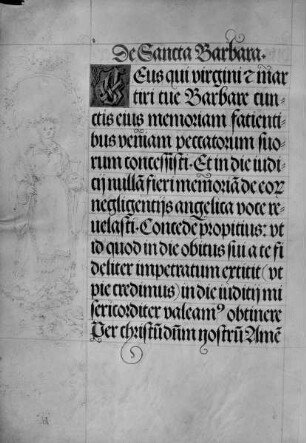 De Sancta Barbara.
Deus qui virgini ⁊ mar
tiri tue Barbare cun
ctis eius memoriam facienti
bus veniam peccatorum suo
rum concessisti. Et in die iudi
cij nullā fieri memoriā de eorꝝ
negligentijs angelica voce re
uelasti. Concede propitius: vt
id quod in die obitus sui a te fi
deliter impetratum extitit (vt
pie credimus) in die iudicij mi
sericorditer valeamꝰ obtinere
Per christū dūm nostrū Amē